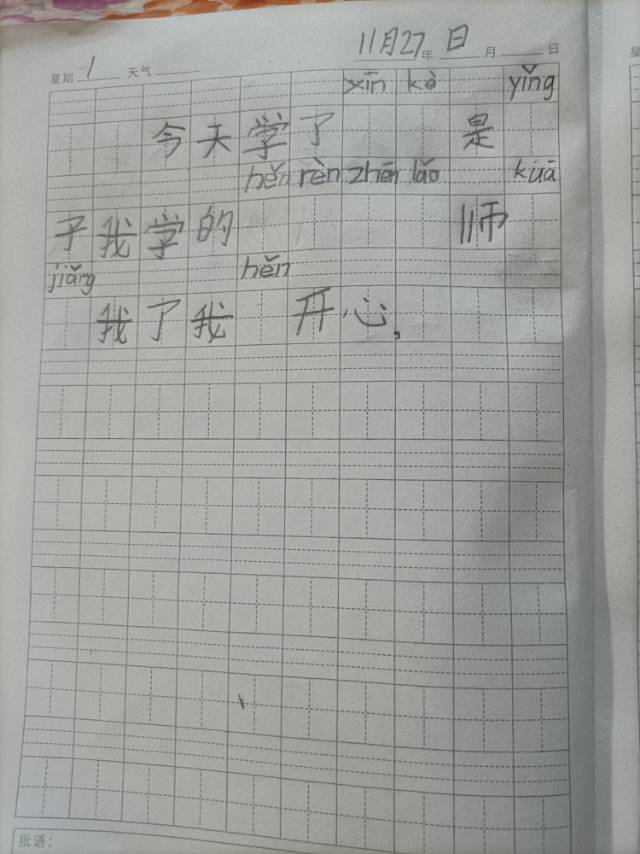 11月27年 日 月 日
星期 1 天气
今天学了 xīn kè 是 yǐng
子我学的 hěn rèn zhēn lǎo 师 kuā
jiǎng 我了我 hěn 开心,
批语: